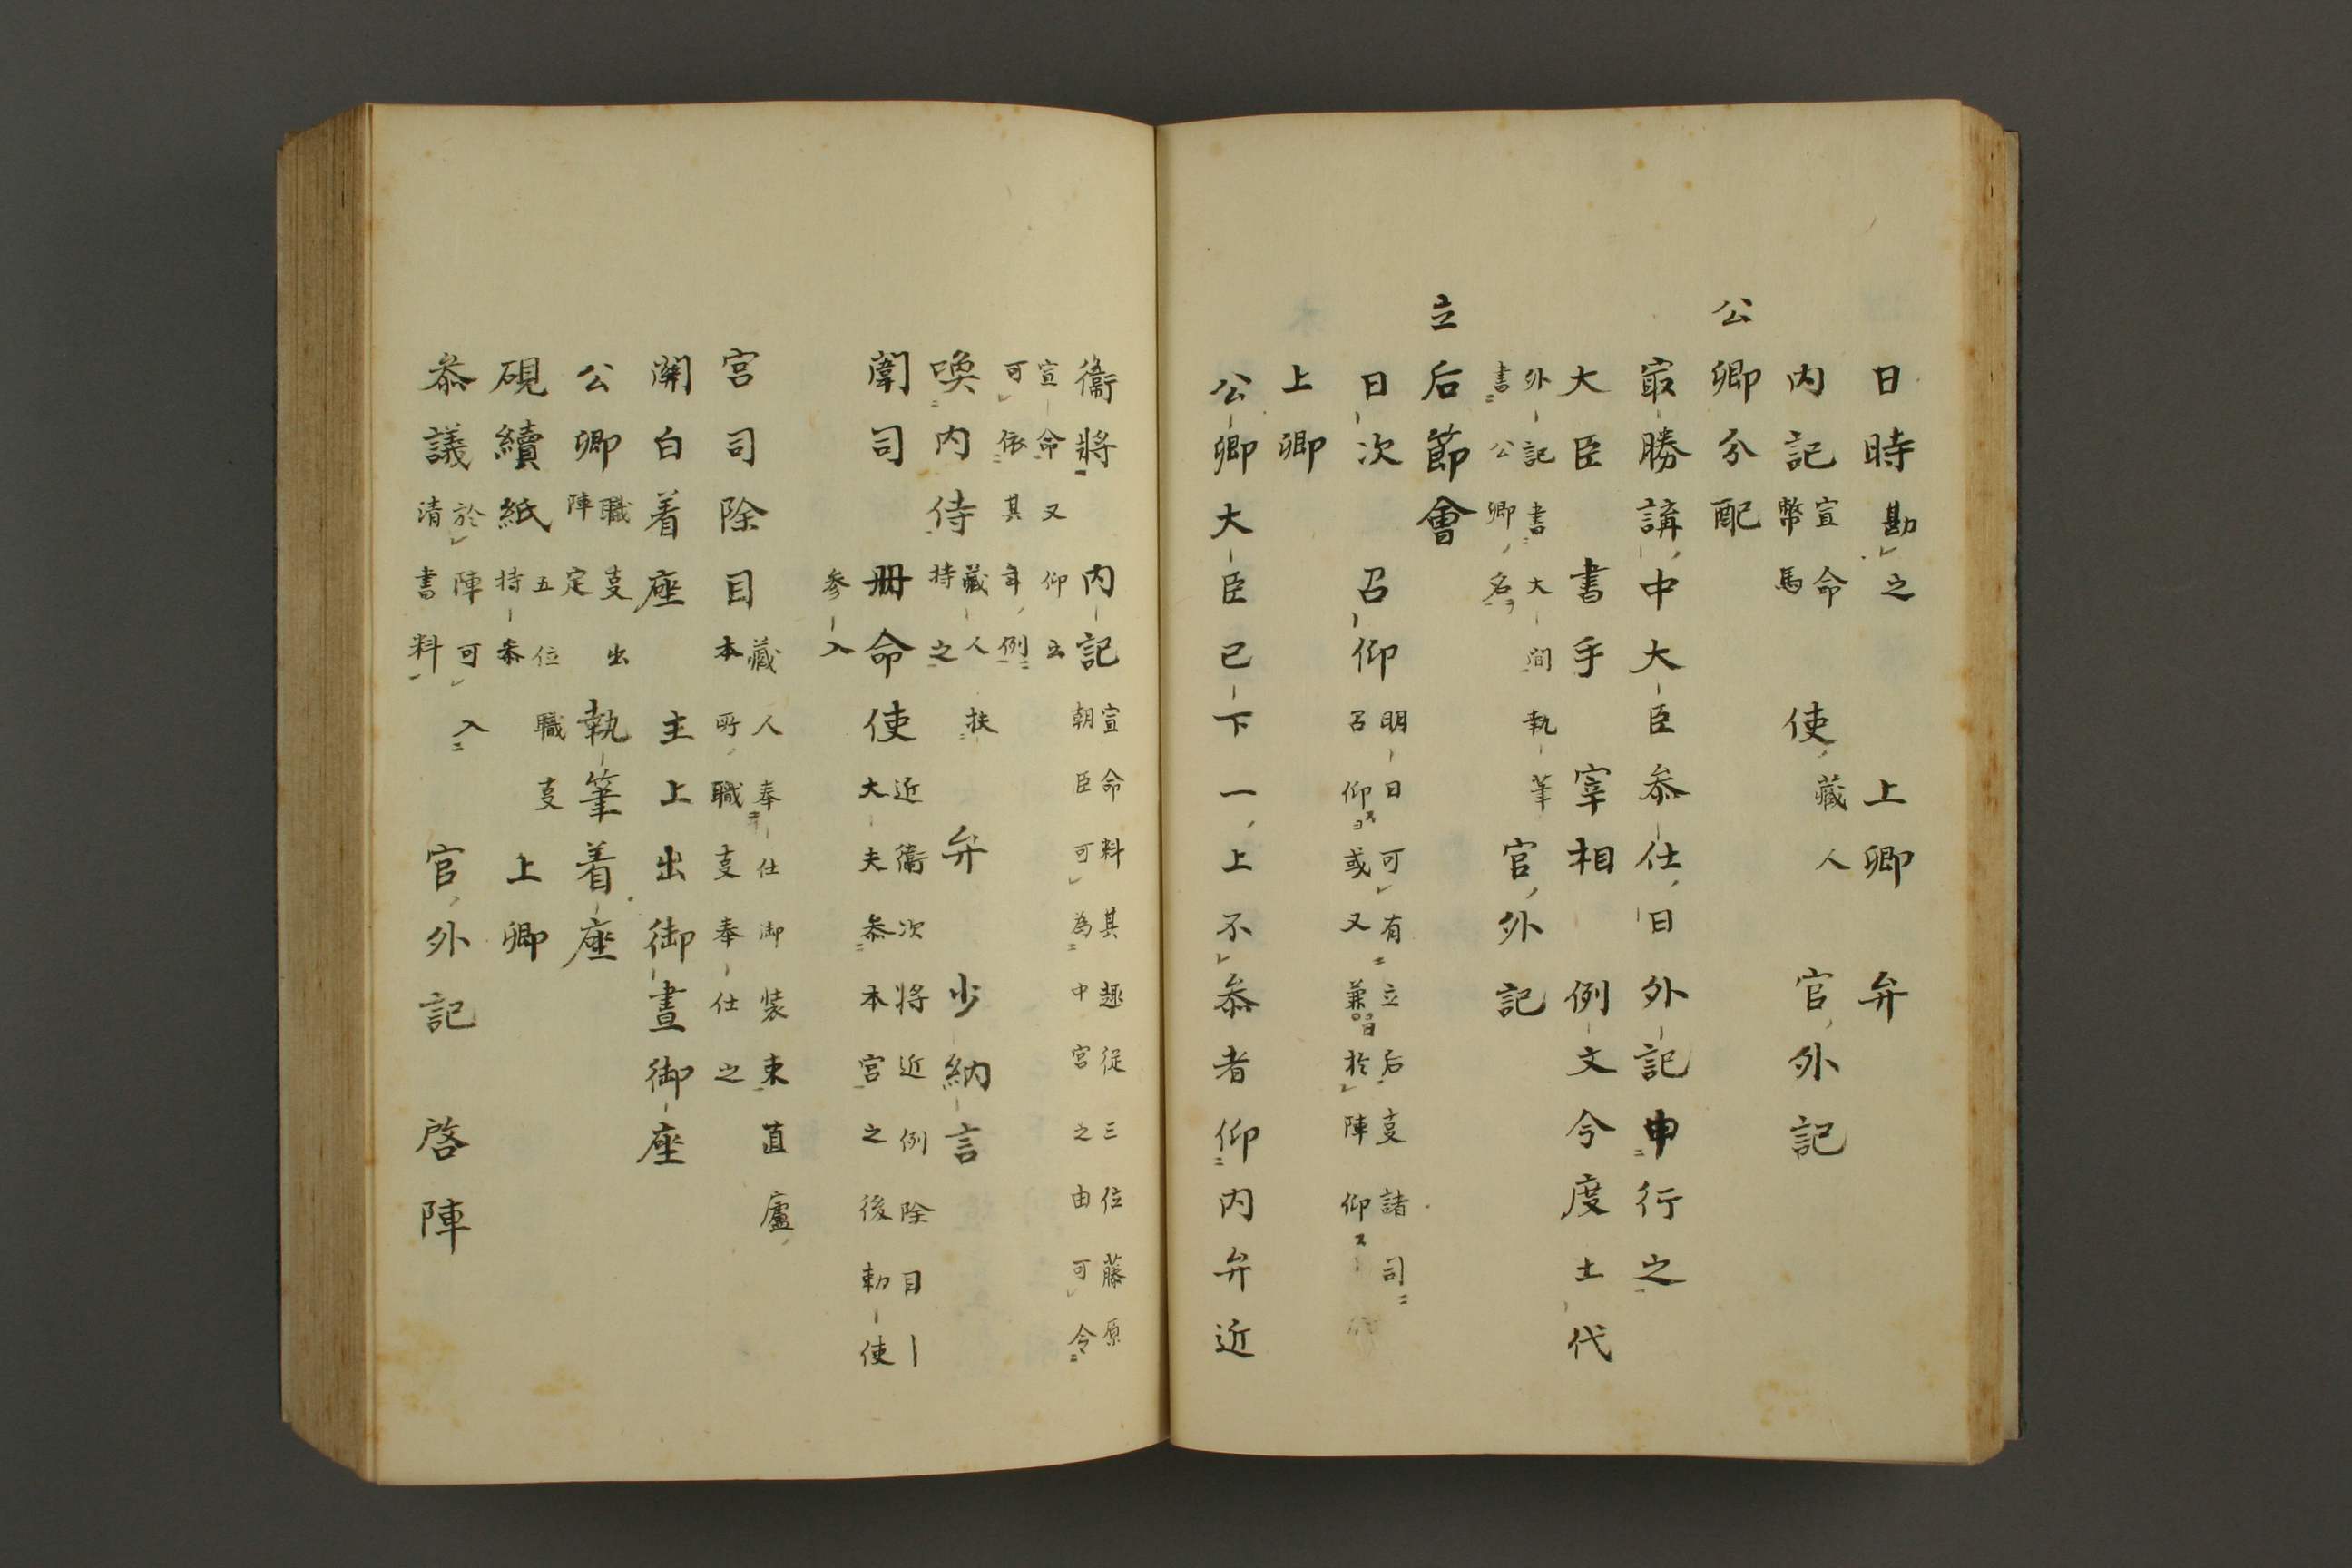 日時勘之 上卿 弁
内記宣命幣馬 使藏人 官外記
公卿分配
冣勝講中大臣叅仕日外記申行之
大臣 書手 宰相 例文 今度土代
外記書大間執筆
書公卿名 官外記
立后節會
日次 召仰明日可有立后㕝諸司
召仰ス或又兼日於陣仰ス
上卿
公卿大臣已下一上不叅者仰内弁近
衞將 内記宣命料其趣従三位藤原
朝臣可為中宮之由可令
宣命又仰云
可依其年例
喚内侍藏人扶持之 弁 少納言
闈司 冊命使近衞次将近例除目｜
大夫叅本宮之後勅使
参入
宮司除目藏人奉仕御装束直廬
本所職㕝奉仕之
関白着座 主上出御晝御座
公卿職㕝出陣定執筆着座
硯續紙五位職㕝持叅 上卿
叅議於陣可入清書料 官外記 啓陣